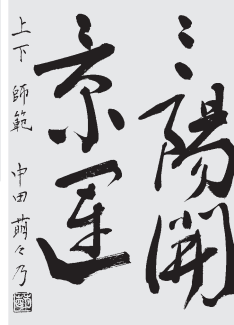 三陽開
景運
上下 師範 中田 萌々乃